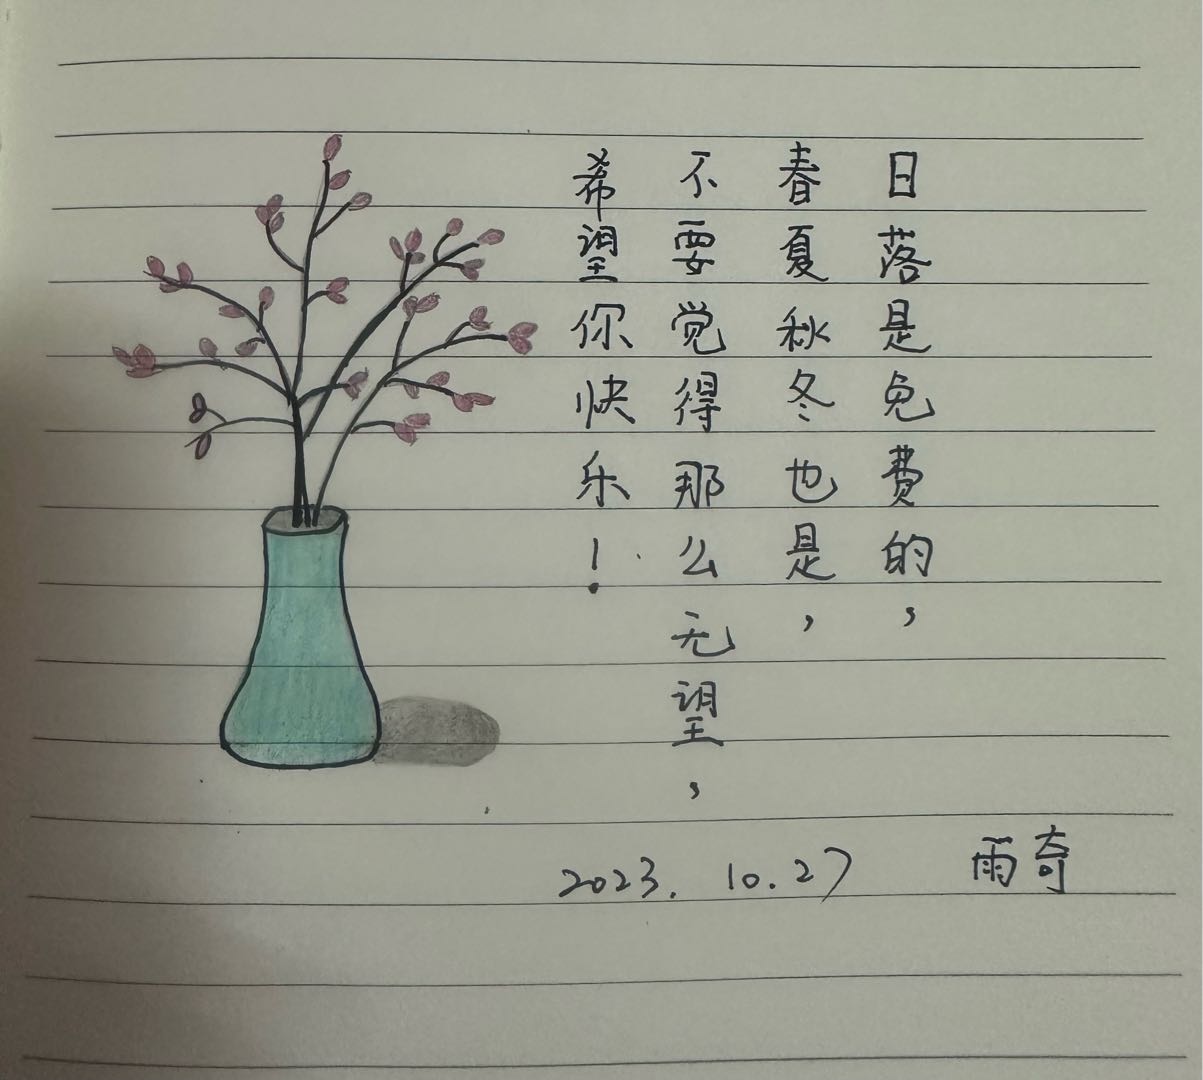 日落是免费的，
春夏秋冬也是，
不要觉得那么无望，
希望你快乐！
2023.10.27 雨奇